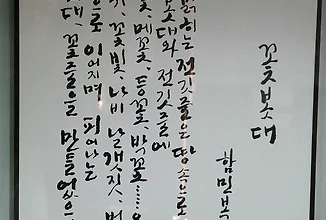 꽃봇대
함민복
밝히는 전깃줄은 땅속으로
봇대와 전깃줄에
꽃, 메꽃, 등꽃, 박꽃……
꽃빛, 나비 날갯짓, 벌
으로 이어지며 피어나는
대, 꽃줄을 만들었습